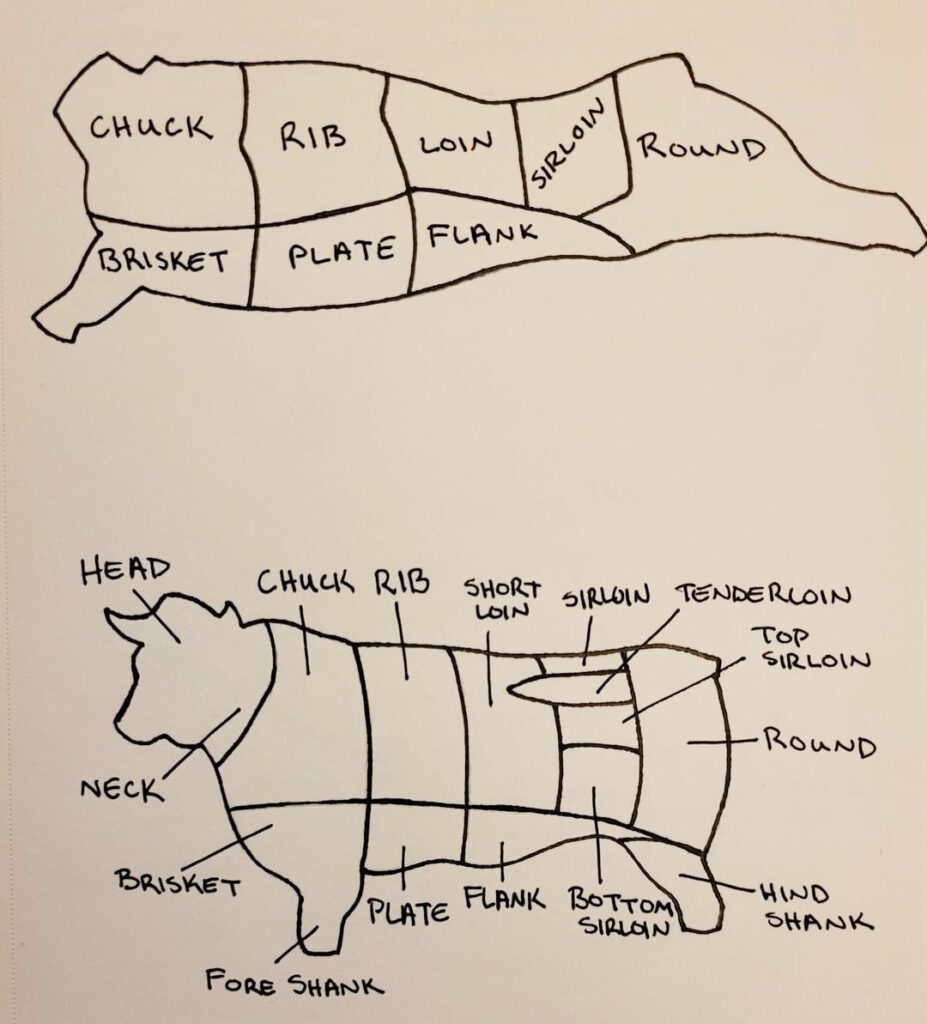 CHUCK
RIB
LOIN
SIRLOIN
ROUND
BRISKET
PLATE
FLANK
HEAD
CHUCK
RIB
SHORT
LOIN
SIRLOIN
TENDERLOIN
TOP
SIRLOIN
ROUND
NECK
BRISKET
PLATE
FLANK
BOTTOM
SIRLOIN
HIND
SHANK
FORE SHANK